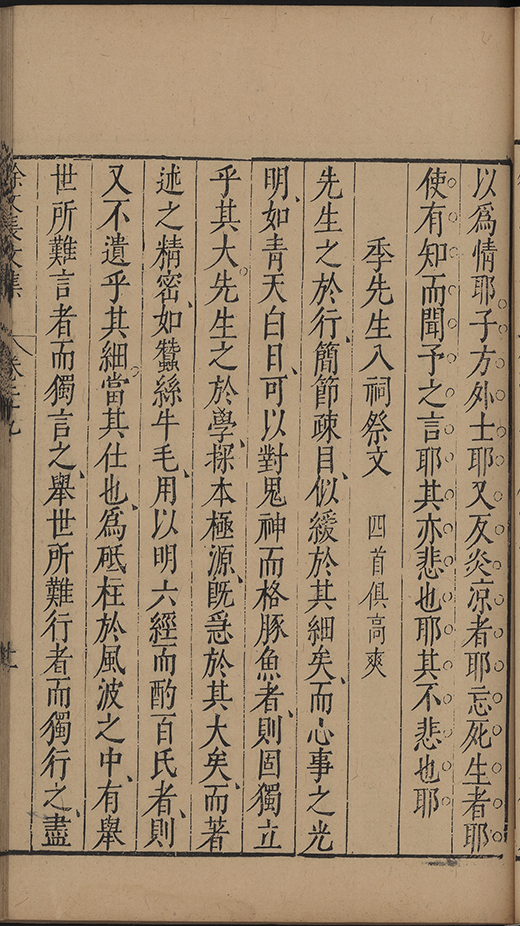 以為情耶子方外士耶又友炎凉者耶忘死生者耶
使有知而聞予之言耶其亦悲也耶其不悲也耶
季先生入祠祭文　四首俱高爽
先生之於行、簡節疎目、似緩於其細矣、而心事之光
明、如青天白日、可以對鬼神而格豚魚者、則固獨立
乎其大。先生之於學、探本極源、既急於其大矣、而著
述之精密、如蠶絲牛毛、用以明六經而酌百氏者、則
又不遺乎其細。當其仕也、為砥柱於風波之中、有舉
世所難言者而獨言之、舉世所難行者而獨行之、盡
徐文長文集　卷之二十九